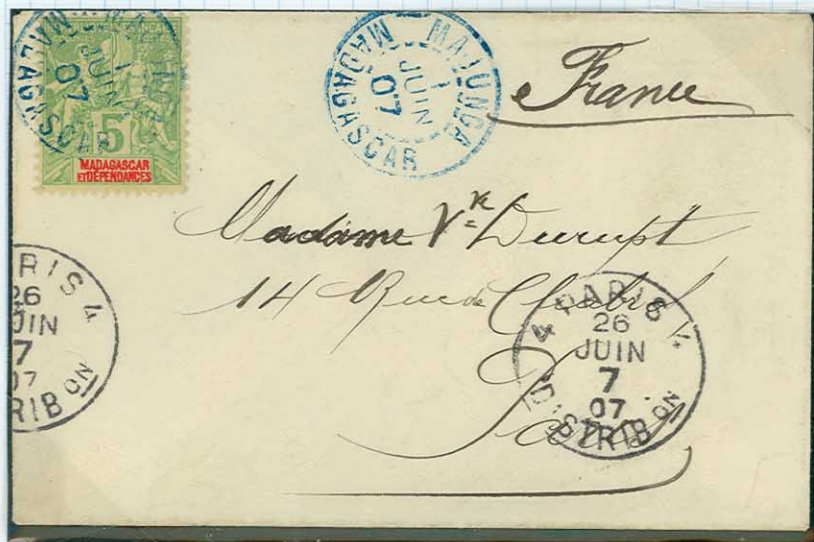 MADAGASCAR
JUIN
07
5
MADAGASCAR
ET DÉPENDANCES
MAJUNGA
1
JUIN
07
MADAGASCAR
France
Madame Vve Durupt
14 Rue de Chabrol
Paris
ARIS 4
26
JUIN
7
07
TRIB ON
4 PARIS 4
26
JUIN
7
07
DISTRIB ON